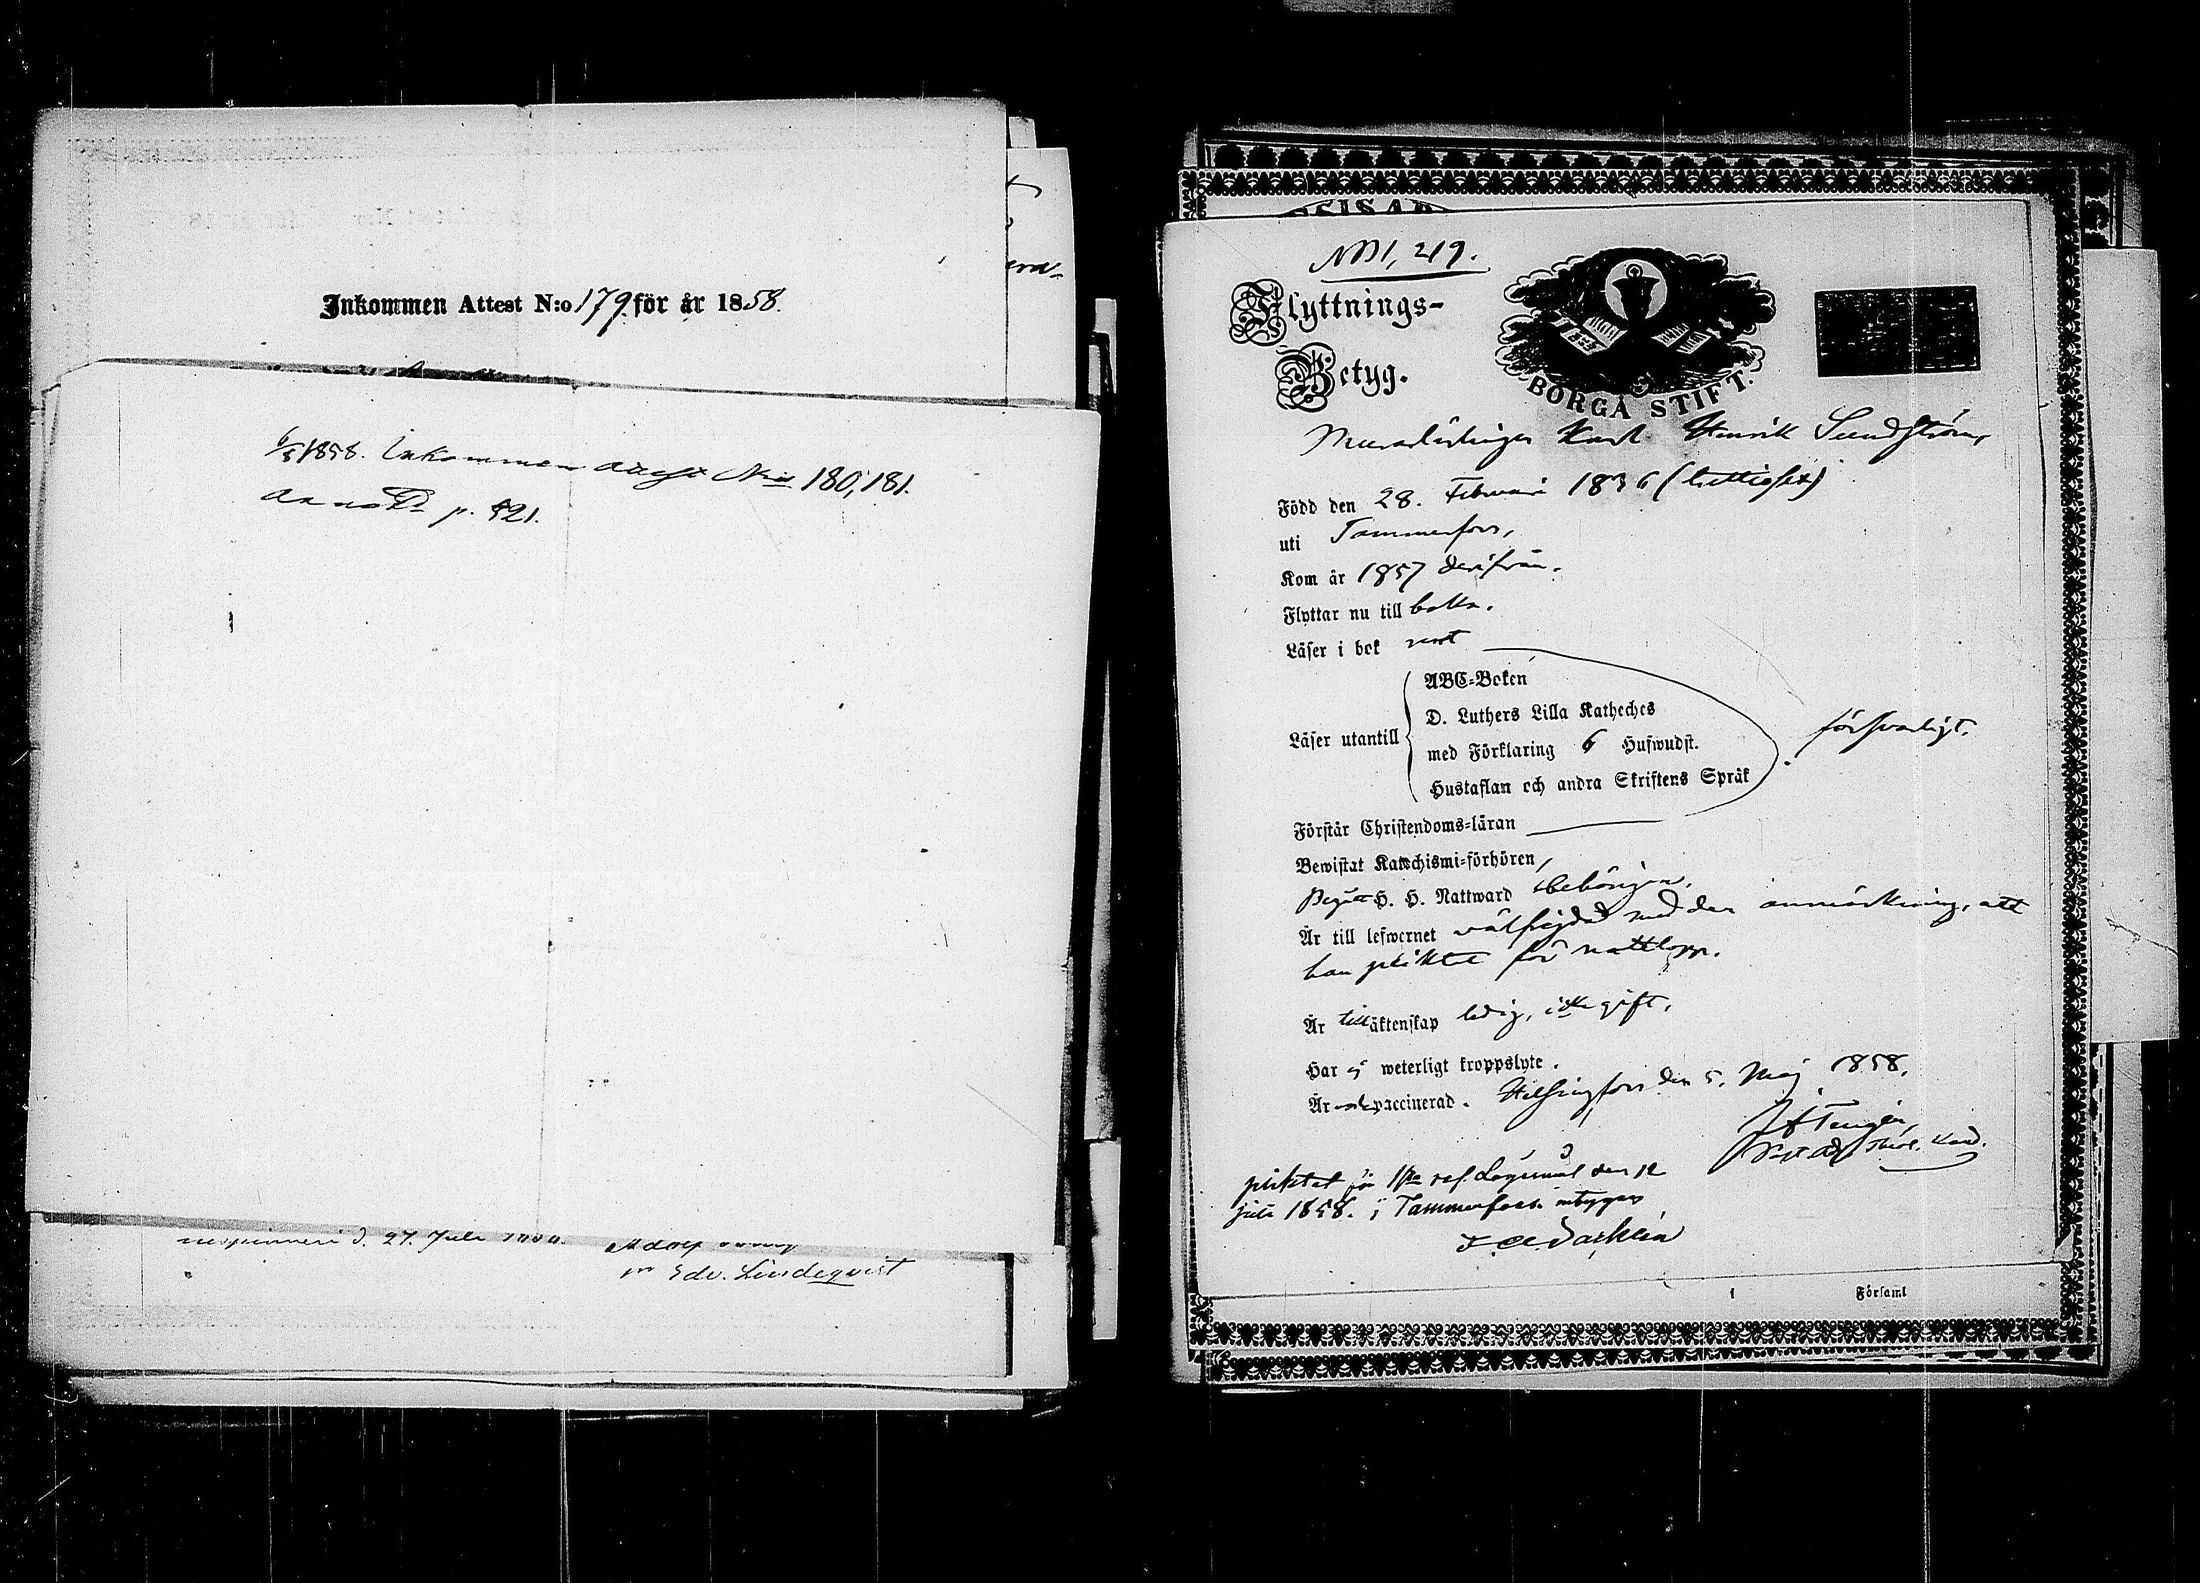 Inkommen Attest N:o 179 för år 1858.
6/5 1858. Inkommen attest N:is 180, 181.
p. 521.
d. 27. Juli
Adolf
Edv. Lindeqvist
219.
Flyttnings-
Betyg.
BORGÅ STIFT.
Murarlärlingen Karl Henrik Sundström,
Född den 28. Februari 1836 (trettiosex)
uti Tammerfors,
Kom år 1857 derifrån.
Flyttar nu till baka.
Läser i bok rent
ABC-Boken
D. Luthers Lilla Katheches
Läser utantill
med Förklaring 6 Hufwudst.
försvarligt.
Hustaflan och andra Skriftens Språk
Förstår Christendoms-läran
Bewistat Katechismi-förhören,
Begått H. H. Nattward behörigen.
Är till lefwernet välfrejdad med den anmärkning, att
han pliktat för nattlopp.
Är till äktenskap ledig, icke gift.
Har ej weterligt kroppslyte.
Är vaccinerad. Helsingfors den 5. Maj 1858.
pliktat för 1sta resan Lägersmål den 12
juli 1858. i Tammerfors intygar
Församl